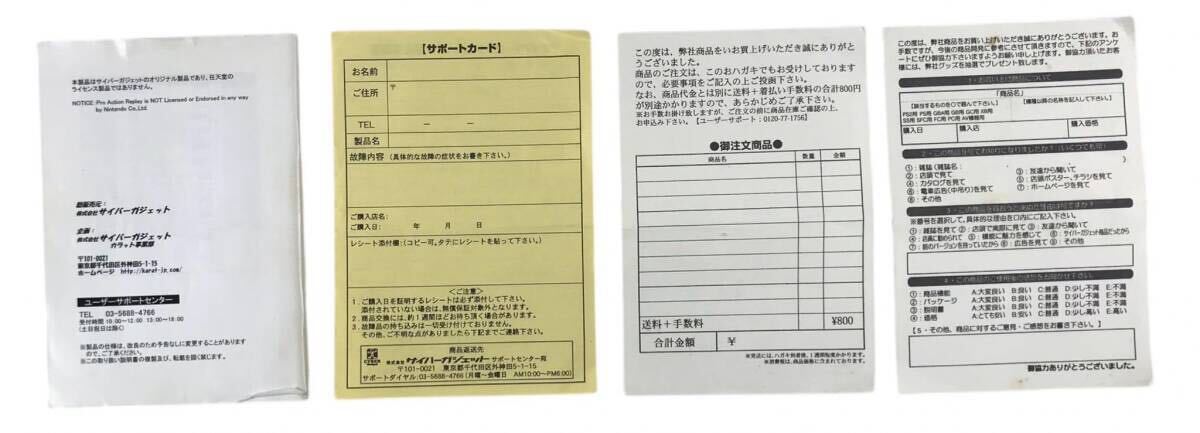 本製品はサイバーガジェットのオリジナル製品であり、任天堂の
ライセンス製品ではありません。
NOTICE:Pro Action Replay is NOT Licensed or Endorsed in any way
by Nintendo Co.,Ltd.
販売元：
株式会社 サイバーガジェット
企画：
株式会社 サイバーガジェット
カラット事業部
〒101-0021
東京都千代田区外神田5-1-15
ホームページ http://karat-jp.com/
ユーザーサポートセンター
TEL 03-5688-4766
受付時間 10:00～12:00 13:00～18:00
(土日祝日は除く)
※製品の仕様は、改良のため予告なしに変更することがあります
ので、ご了承ください。
※この取り扱い説明書の複製及び、転載を固く禁じます。
【サポートカード】
お名前
ご住所 〒
TEL － －
製品名
故障内容 (具体的な故障の症状をお書き下さい。)
ご購入店名:
ご購入日: 年 月 日
レシート添付欄:(コピー可。タテにレシートを貼って下さい。)
＜ご注意＞
1.ご購入日を証明するレシートは必ず添付して下さい。
添付されていない場合は、無償保証対象外となります。
2.商品交換には、約1週間ほどお待ち頂く場合があります。
3.故障品の持ち込みは一切受け付けておりません。
その他、ご不明な点がありましたら下記までご連絡下さい。
商品返送先
CYBER
株式会社 サイバーガジェット サポートセンター宛
〒101-0021 東京都千代田区外神田5-1-15
サポートダイヤル:03-5688-4766(月曜～金曜日 AM10:00～PM6:00)
この度は、弊社商品をいお買上げいただき誠にありがと
うございました。
商品のご注文は、このおハガキでもお受けしております
ので、必要事項をご記入の上ご投函下さい。
なお、商品代金とは別に送料+着払い手数料の合計800円
が別途かかりますので、あらかじめご了承下さい。
※お手数お掛け致しますが、ご注文の前に商品在庫ご確認の上、
お申込み下さい。【ユーザーサポート：0120-77-1756】
●御注文商品●
商品名 数量 金額
送料＋手数料 ¥800
合計金額 ￥
※発送には、ハガキ到着後、1週間程度かかります。
※消費税は、商品価格に含まれております。
この度は、弊社商品をお買い上げいただき誠にありがとうございます。お
手数ですが、今後の商品開発に参考にさせて頂きますので、下記のアンケ
ートにぜひ御協力下さいますようお願い申し上げます。御協力頂いたお客
様には、弊社グッズを抽選でプレゼント致します。
1・お買い上げ商品について
「商品名」
【該当するものを○で囲んで下さい。】
【機種以降の名称を記入して下さい。】
PS2用 PS用 GBA用 GB用 GC用 XB用
SS用 SFC用 FC用 PC用 AV機器用
購入日 購入店 購入価格
2・この商品を何でお知りになりましたか？(いくつでも可)
①：雑誌(雑誌名： )
②：店頭で見て ③：友達から聞いて
④：カタログを見て ⑤：店頭ポスター、チラシを見て
⑥：電車広告(中吊り)を見て ⑦：ホームページを見て
⑧：その他
3・この商品を買おうと決めた理由は何ですか？
※番号を選択して、具体的な理由を口内にご記入下さい。
①：雑誌を見て ②：店頭で実際に見て ③：友達から聞いて
④：店員に勧められて ⑤：機能に魅力を感じて ⑥：サイバーガジェット商品だったから
⑦：前のバージョンを持っていたから ⑧：広告を見て ⑨：その他
4・この商品のご使用後の感想をお聞かせ下さい。
①：商品機能 A:大変良い B:良い C:普通 D:少し不満 E:不満
②：パッケージ A:大変良い B:良い C:普通 D:少し不満 E:不満
③：説明書 A:大変良い B:良い C:普通 D:少し不満 E:不満
④：価格 A:とても安い B:安い C:普通 D:少し高い E:高い
【5・その他、商品に対するご意見・ご感想をお書き下さい。】
御協力ありがとうございました。